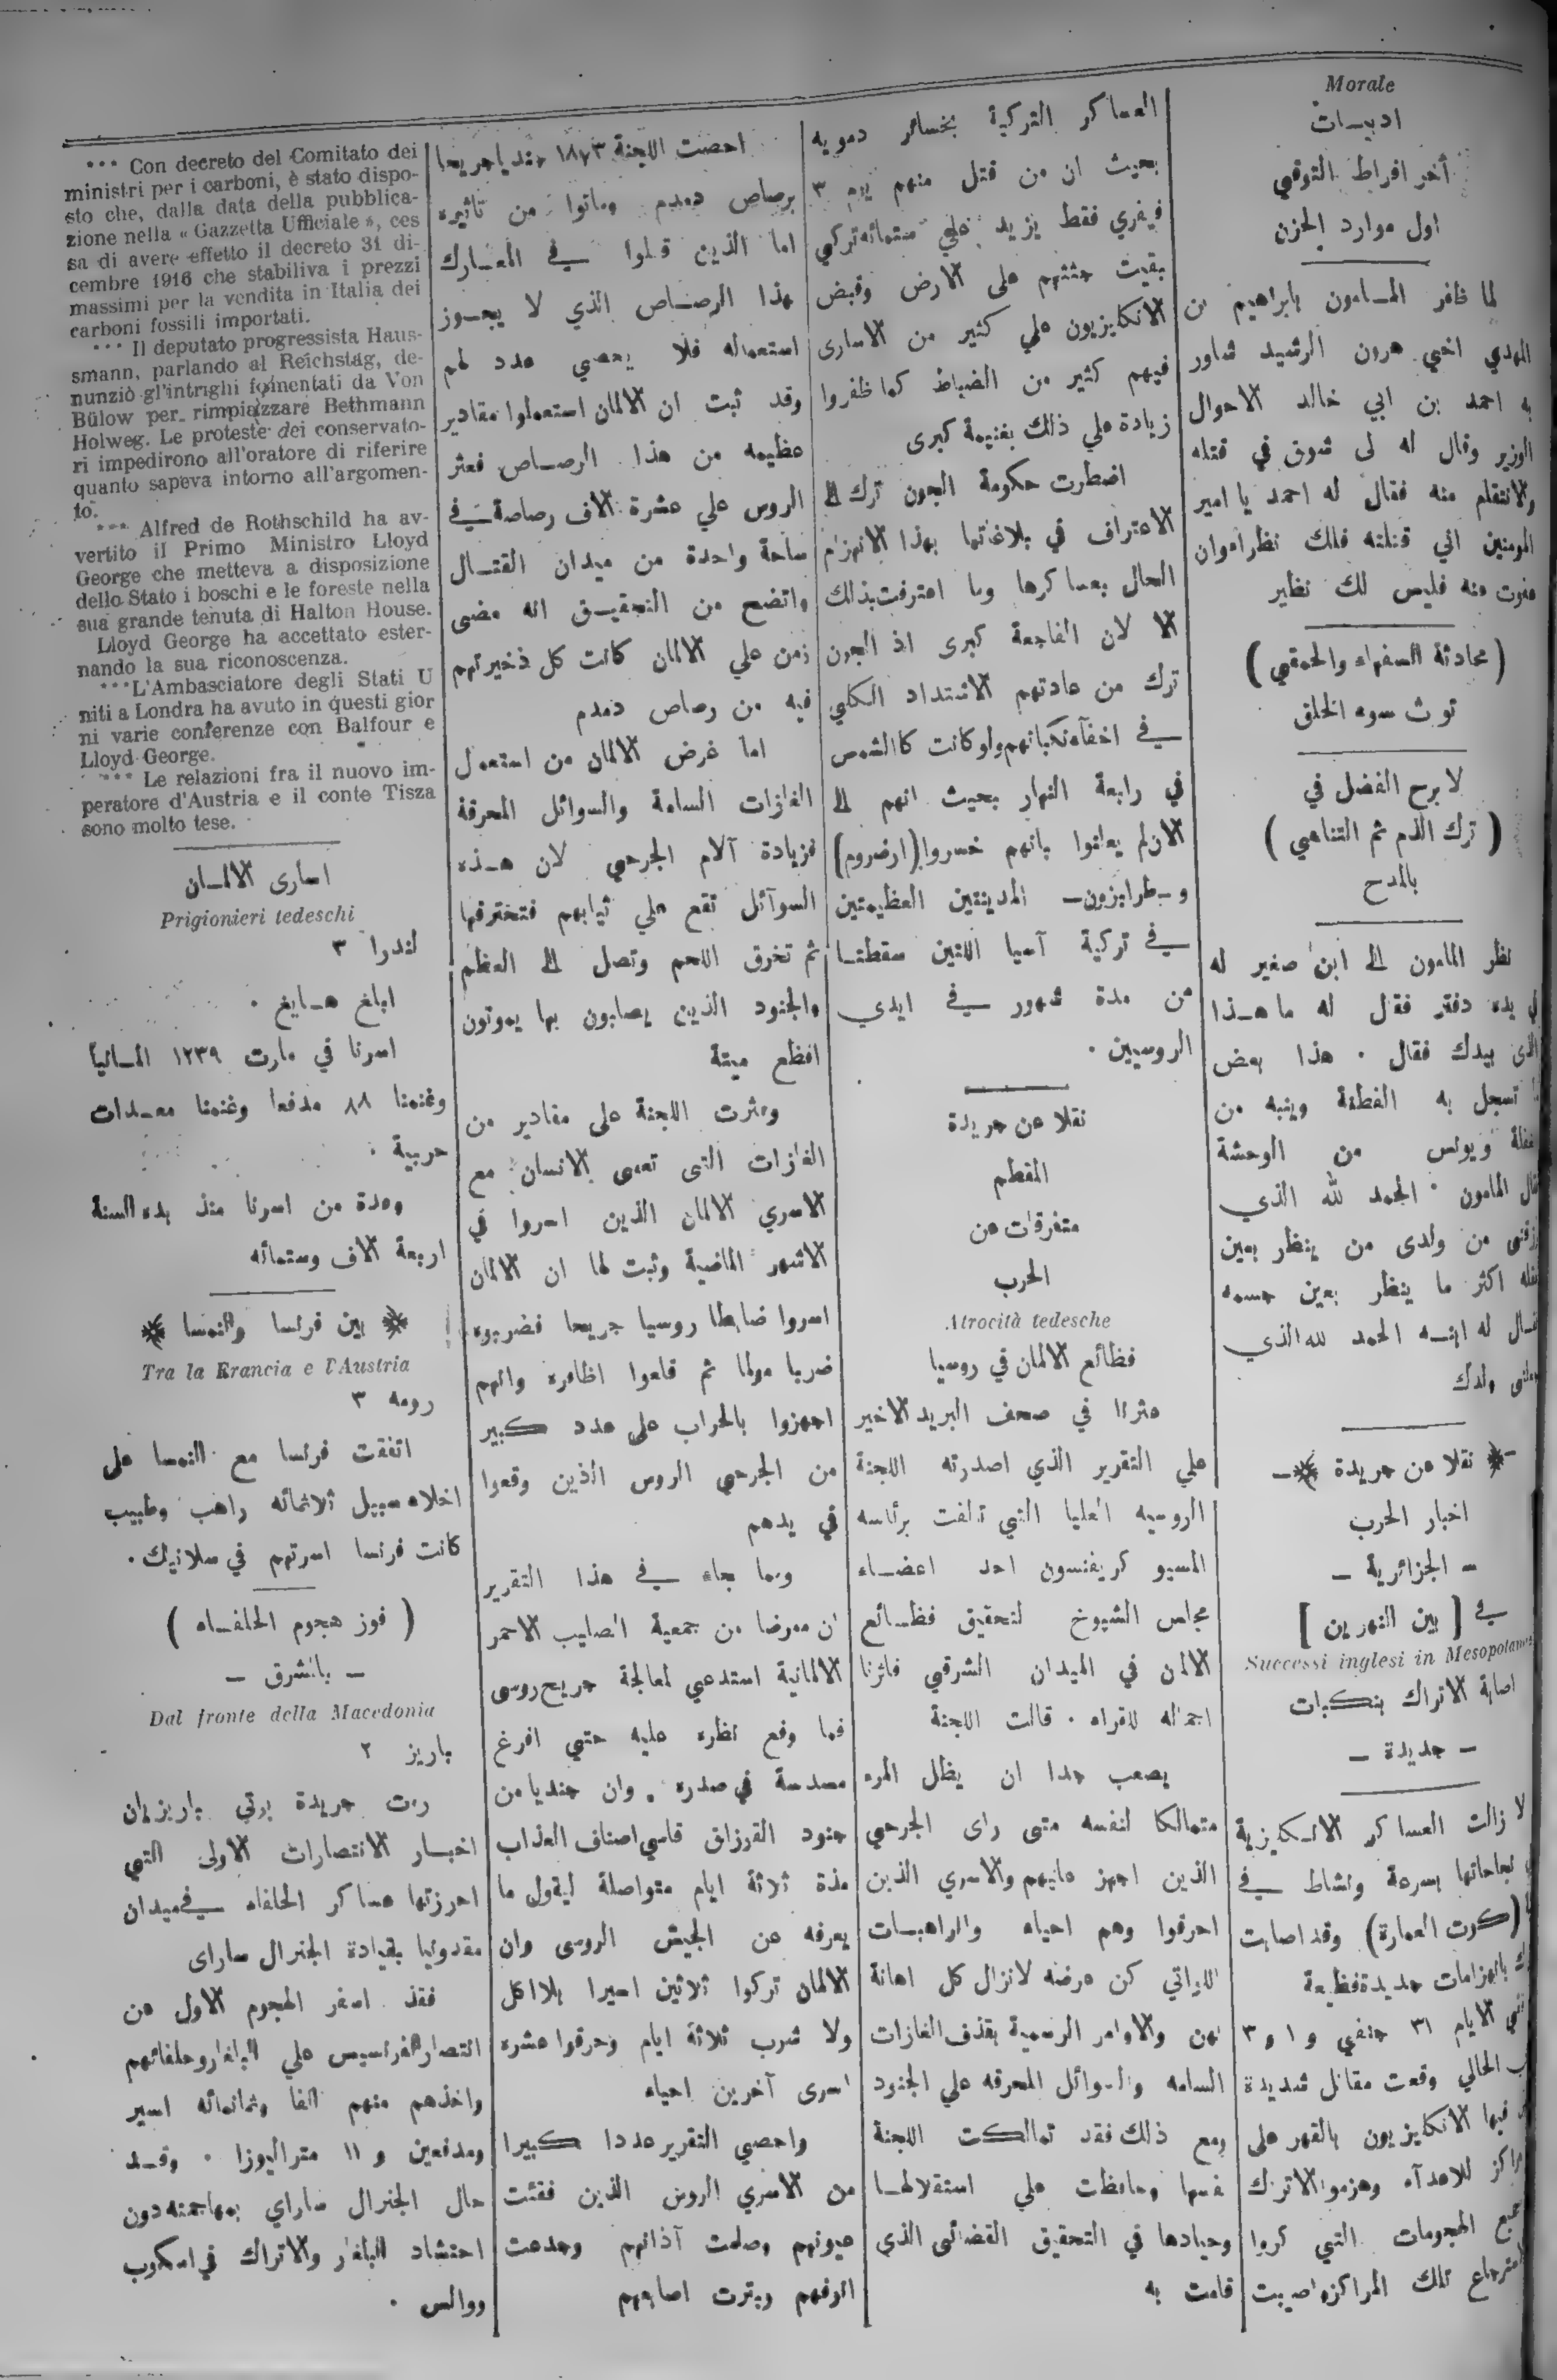 Morale
ادبيات
أخر افراط التوقي
اول موارد الحزن
لما ظفر المامون بابراهيم بن
المهدي اخي هرون الرشيد شاور
به احمد بن ابي خالد الاحوال
الوزير وقال له لى شوق في قتله
والانتقام منه فقال له احمد يا امير
المومنين اني قتلته فلك نظراء وان
عفوت منه فليس لك نظير
( محادثة السفهاء والحمقي )
تورث سوء الخلق
لا برح الفضل في
( ترك الذم ثم التناهي )
بالمدح
نظر المامون الى ابن صغير له
في يده دفتر فقال له ما هذا
الذى بيدك فقال . هذا بعض
ما تسجل به الفطنة وينبه من
الغفلة ويونس من الوحشة
فقال المامون . الحمد لله الذي
رزقني من ولدى من ينظر بعين
عقله اكثر ما ينظر بعين جسمه
فقال له ابنه الحمد لله الذي
ولدك
نقلا عن جريدة
اخبار الحرب
– الجزائرية –
في [ بين النهرين ]
Successi inglesi in Mesopotamia
اصابة الاتراك بنكبات
– جديدة –
لا زالت العساكر الانكليزية
نجاحاتها بسرعة ونشاط في
(كوت العمارة) وقد اصابت
بانهزامات جديدة فظيعة
الايام ٣١ جنفي و ١ و ٣
الحالي وقعت مقاتل شديدة
فيها الانكليزيون بالقهر على
مراكز للاعداء وهزموا الاتراك
جميع الهجومات التي كروا
لاسترجاع تلك المراكز واصيبت
العساكر التركية بخسائر دمويه
بحيث ان من قتل منهم يوم ٣
فيفري فقط يزيد علي ستمائه تركي
بقيت جثثهم على الارض وقبض
الانكليزيون علي كثير من الاسارى
فيهم كثير من الضباط كما ظفروا
زيادة علي ذلك بغنيمة كبرى
اضطرت حكومة الجون ترك الى
الاعتراف في بلاغاتها بهذا الانهزام
الحال بعساكرها وما اعترفت بذلك
الا لان الفاجعة كبرى اذ الجون
ترك من عادتهم الاشتداد الكلي
في اخفآء نكباتهم ولو كانت كالشمس
في رابعة النهار بحيث انهم الى
الان لم يعلنوا بانهم خسروا (ارضروم)
و–طرابزون– المدينتين العظيمتين
في تركية آسيا اللتين سقطتا
من مدة شهور في ايدي
الروسيين .
نقلا عن جريدة
المقطم
متفرقات عن
الحرب
Atrocità tedesche
فظائع الالمان في روسيا
عثرنا في صحف البريد الاخير
علي التقرير الذي اصدرته اللجنة
الروسيه العليا التي تالفت برئاسه
المسيو كريفنسون احد اعضاء
مجلس الشيوخ لتحقيق فظائع
الالمان في الميدان الشرقي فاثرنا
اجماله للقراء . قالت اللجنة
يصعب جدا ان يظل المرء
متمالكا لنفسه متى راى الجرحي
الذين اجهز عليهم والاسري الذين
احرقوا وهم احياء والراهبات
اللواتي كن عرضه لانزال كل اهانة
بهن والاوامر الرسمية بقذف الغازات
السامه والسوائل المحرقه علي الجنود
ومع ذلك فقد تمالكت اللجنة
نفسها وحافظت علي استقلالها
وحيادها في التحقيق القضائى الذي
قامت به
احصت اللجنة ١٨٧٣ جنديا جريحا
برصاص دمدم وماتوا من تاثيره
اما الذين قتلوا في المعارك
بهذا الرصاص الذي لا يجوز
استعماله فلا يحصي عدد لهم
وقد ثبت ان الالمان استعملوا مقادير
عظيمه من هذا الرصاص فعثر
الروس علي عشرة الاف رصاصة في
ساحة واحدة من ميدان القتال
واتضح من التحقيق انه مضى
زمن علي الالمان كانت كل ذخيرتهم
فيه من رصاص دمدم
اما غرض الالمان من استعمال
الغازات السامة والسوائل المحرقة
فزيادة آلام الجرحي لان هذه
السوآئل تقع علي ثيابهم فتخترقها
ثم تخرق اللحم وتصل الى العظم
والجنود الذين يصابون بها يموتون
افظع ميتة
وعثرت اللجنة على مقادير من
الغازات التى تعمى الانسان مع
الاسري الالمان الذين اسروا في
الاشهر الماضية وثبت لها ان الالمان
اسروا ضابطا روسيا جريحا فضربوه
ضربا مولما ثم قلعوا اظافره وانهم
اجهزوا بالحراب على عدد كبير
من الجرحي الروس الذين وقعوا
في يدهم
ومما جاء في هذا التقرير
ان ممرضا من جمعية الصليب الاحمر
الالمانية استدعي لمعالجة جريح روسى
فما وقع نظره عليه حتي افرغ
مسدسة في صدره . وان جنديا من
جنود القوزاق قاسي اصناف العذاب
مدة ثلاثة ايام متواصلة ليقول ما
يعرفه عن الجيش الروسى وان
الالمان تركوا ثلاثين اسيرا بلا اكل
ولا شرب ثلاثة ايام وحرقوا عشره
اسرى آخرين احياء
واحصي التقرير عددا كبيرا
من الاسري الروس الذين فقئت
عيونهم وصلمت آذانهم وجدعت
انوفهم وبترت اصابعهم
*** Con decreto del Comitato dei
ministri per i carboni, è stato dispo-
sto che, dalla data della pubblica-
zione nella « Gazzetta Ufficiale », ces
sa di avere effetto il decreto 31 di-
cembre 1916 che stabiliva i prezzi
massimi per la vendita in Italia dei
carboni fossili importati.
*** Il deputato progressista Haus-
smann, parlando al Reichstag, de-
nunziò gl'intrighi fomentati da Von
Bülow per rimpiazzare Bethmann
Holweg. Le proteste dei conservato-
ri impedirono all'oratore di riferire
quanto sapeva intorno all'argomen-
to.
*** Alfred de Rothschild ha av-
vertito il Primo Ministro Lloyd
George che metteva a disposizione
dello Stato i boschi e le foreste nella
sua grande tenuta di Halton House.
Lloyd George ha accettato ester-
nando la sua riconoscenza.
***L'Ambasciatore degli Stati U
niti a Londra ha avuto in questi gior
ni varie conferenze con Balfour e
Lloyd George.
*** Le relazioni fra il nuovo im-
peratore d'Austria e il conte Tisza
sono molto tese.
اسارى الالمان
Prigionieri tedeschi
لندرا ٣
ابلغ هايغ .
اسرنا في مارت ١٢٣٩ المانيا
وغنمنا ٨٨ مدفعا وغنمنا معدات
حربية .
وعدة من اسرنا منذ بدء السنة
اربعة الاف وستمائه
بين فرنسا والنمسا
Tra la Francia e l'Austria
رومه ٣
اتفقت فرنسا مع النمسا على
اخلاء سبيل ثلاثمائه راهب وطبيب
كانت فرنسا اسرتهم في سلانيك .
( فوز هجوم الحلفاء )
– بالشرق –
Dal fronte della Macedonia
باريز ٢
رت جريدة بوتي باريزيان
اخبار الانتصارات الاولى التي
احرزتها عساكر الحلفاء في ميدان
مقدونيا بقيادة الجنرال ساراى
فقد اسفر الهجوم الاول عن
انتصار الفرنسيس علي البلغار وحلفائهم
واخذهم منهم الفا وثمانمائه اسير
ومدفعين و ١١ متراليوزا . وقد
حال الجنرال ساراي بمهاجمته دون
احتشاد البلغار والاتراك في اسكوب
ووالس .